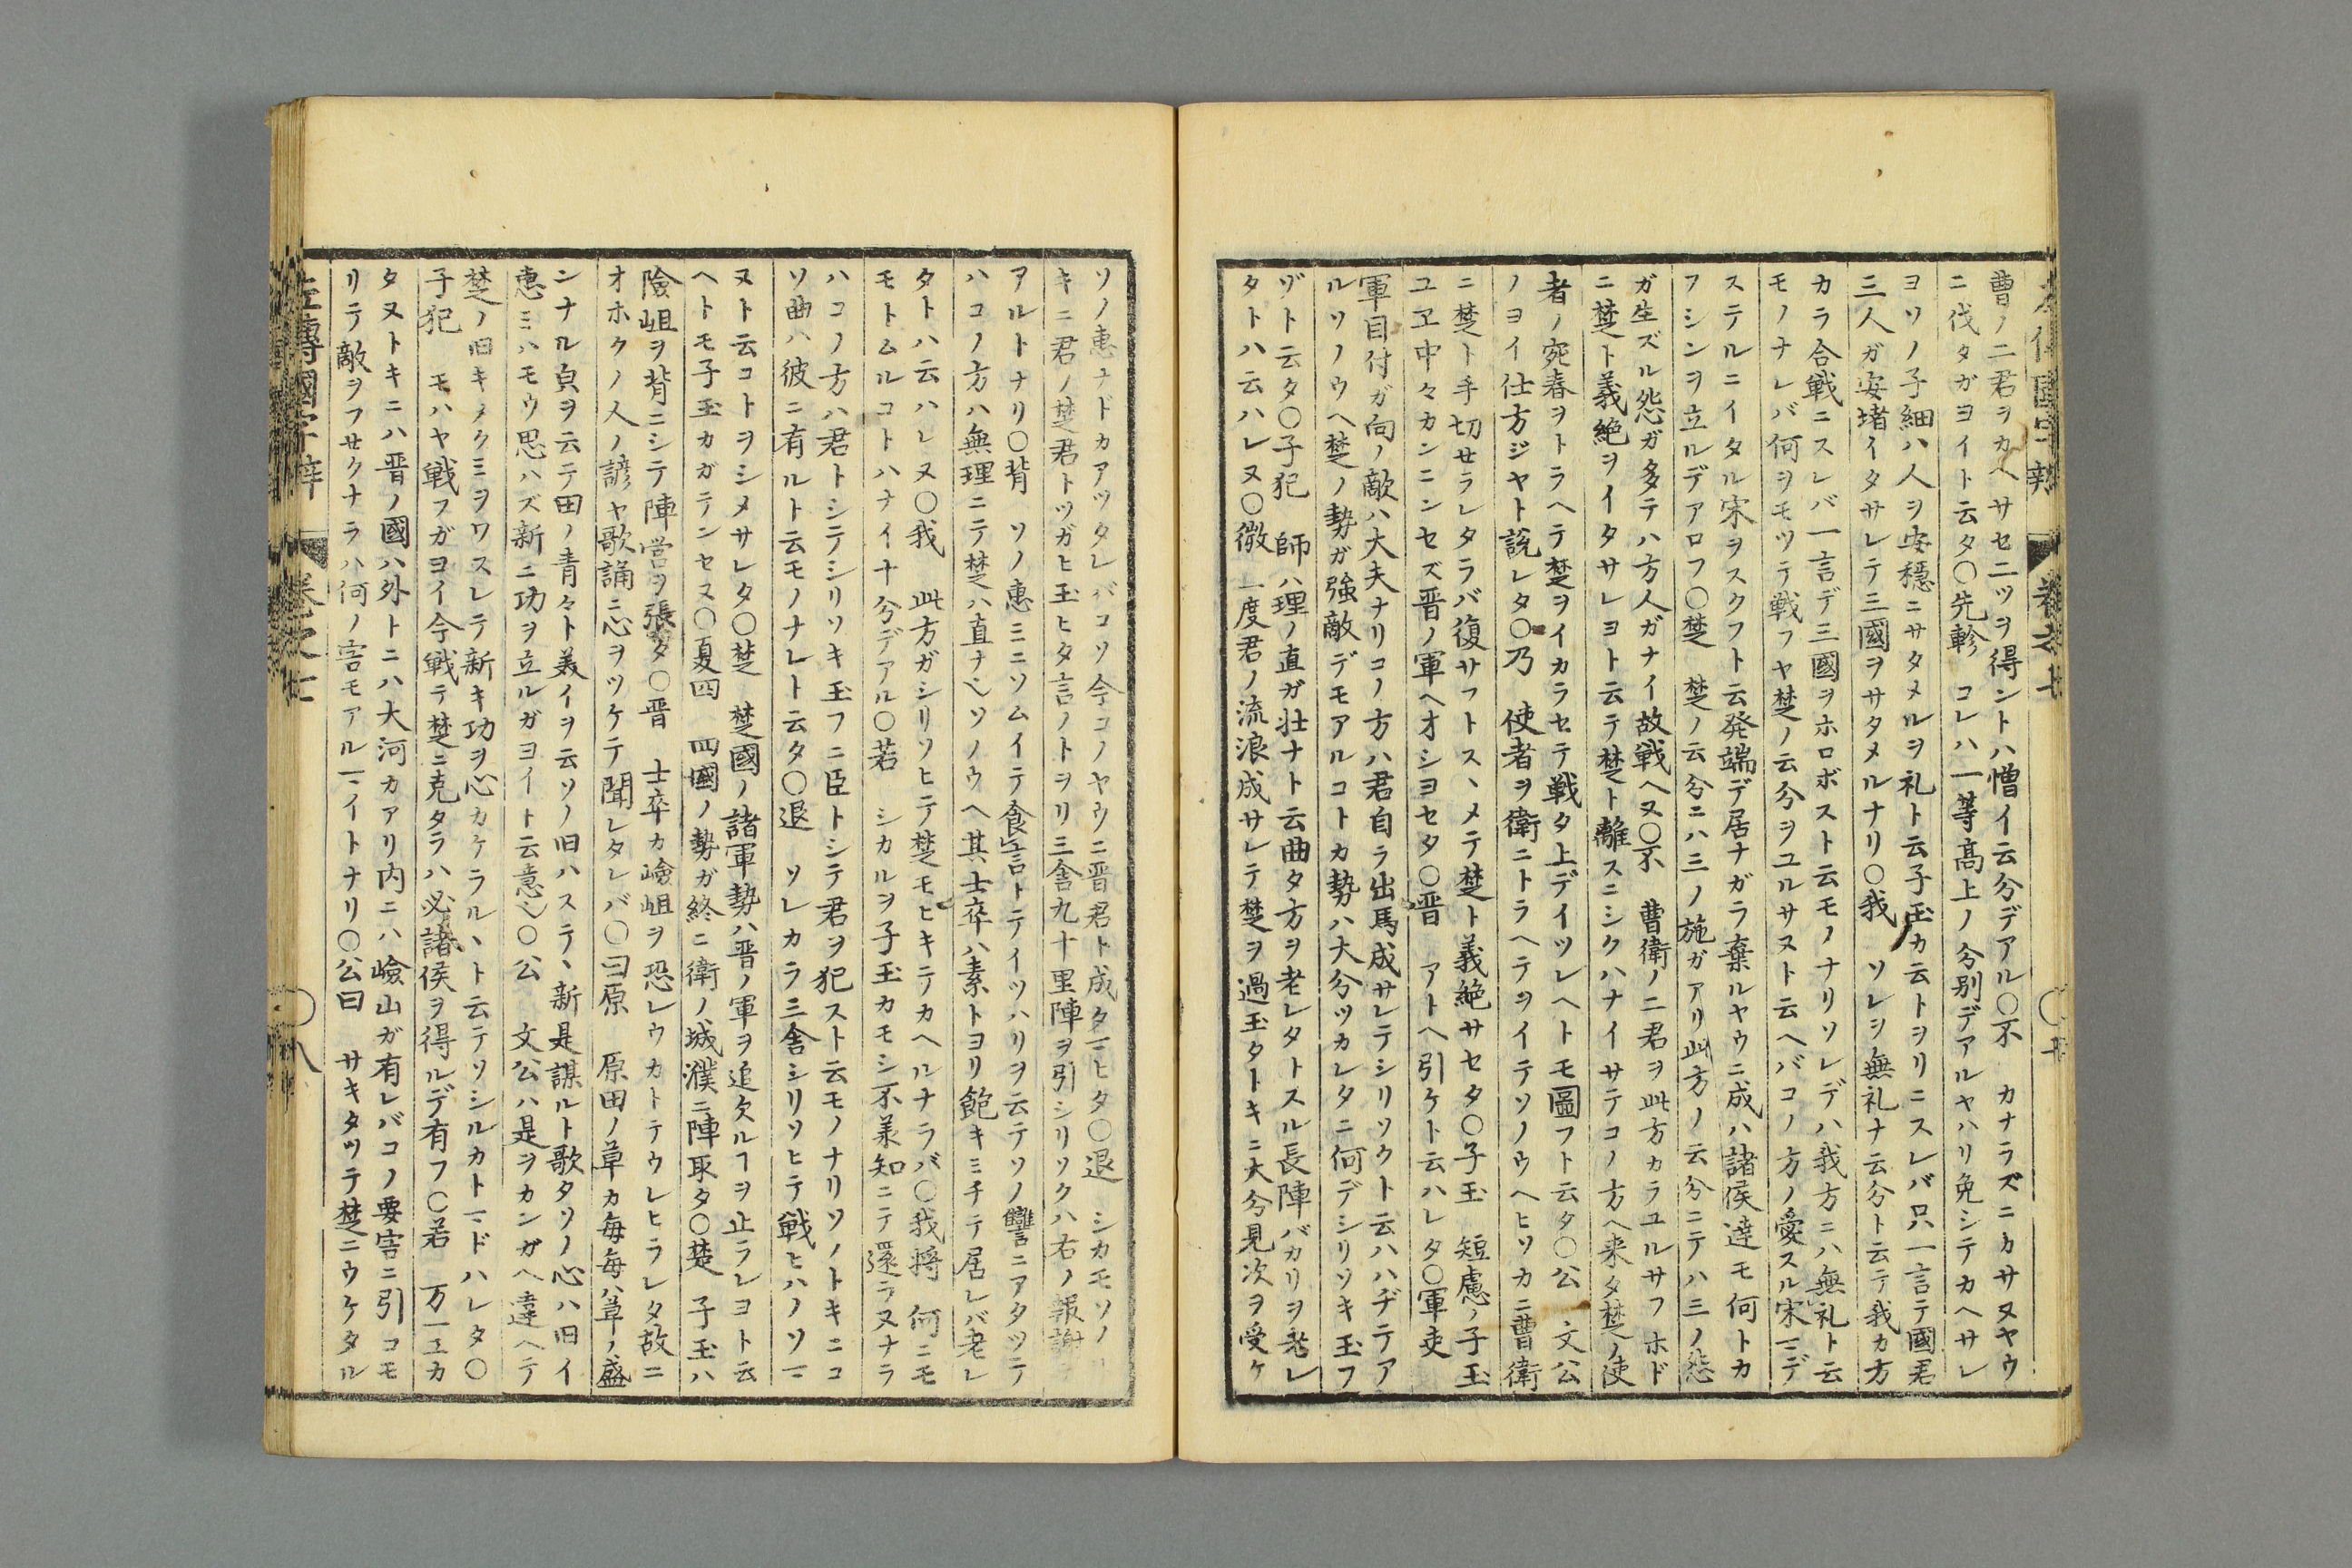 曹ノ二君ヲカヘサセ二ツヲ得ントハ憎イ云分デアル〇不　カナラズニカサヌヤウ
ニ伐タガヨイト云タ〇先軫　コレハ一等高上ノ分別デアルヤハリ免シテカヘサレ
ヨソノ子細ハ人ヲ安穏ニサタメルヲ礼ト云子玉カ云トヲリニスレバ只一言テ國君
三人ガ安堵イタサレテ三國ヲサタメルナリ〇我　ソレヲ無礼ナ云分ト云テ我カ方
カラ合戦ニスレバ一言デ三國ヲホロボスト云モノナリソレデハ我方ニハ無礼ト云
モノナレバ何ヲモツテ戦フヤ楚ノ云分ヲユルサヌト云ヘバコノ方ノ愛スル宋ヿデ
ステルニイタル宋ヲスクフト云発端デ居ナガラ棄ルヤウニ成ハ諸侯達モ何トカ
フシンヲ立ルデアロフ〇楚　楚ノ云分ニハ三ノ施ガアリ此方ノ云分ニテハ三ノ怨
ガ生ズル怨ガ多テハ方人ガナイ故戦ヘヌ〇不　曹衛ノ二君ヲ此方カラユルサフホド
ニ楚ト義絶ヲイタサレヨト云テ楚ト離スニシクハナイサテコノ方ヘ来タ楚ノ使
者ノ宛春ヲトラヘテ楚ヲイカラセテ戦タ上デイツレヘトモ圖フト云タ〇公　文公
ノヨイ仕方ジヤト説レタ〇乃　使者ヲ衛ニトラヘテヲイテソノウヘヒソカニ曹衛
ニ楚ト手切セラレタラバ復サフトスヽメテ楚ト義絶サセタ〇子玉　短慮ノ子玉
ユヱ中々カンニンセズ晋ノ軍ヘオシヨセタ〇晋　アトヘ引ケト云ハレタ〇軍吏
軍目付ガ向ノ敵ハ大夫ナリコノ方ハ君自ラ出馬成サレテシリソクト云ハハヂテア
ルソノウヘ楚ノ勢ガ強敵デモアルコトカ勢ハ大分ツカレタニ何デシリソキ玉フ
ゾト云タ〇子犯　師ハ理ノ直ガ壮ナト云曲タ方ヲ老レタトスル長陣バカリヲ老レ
タトハ云ハレヌ〇微　一度君ノ流浪成サレテ楚ヲ過玉タトキニ大分見次ヲ受ケ
ソノ恵ナドカアツタレバコソ今コノヤウニ晋君ト成タヒタ〇退　シカモソノ
キニ君ノ楚君トツガヒ玉ヒタ言ノトヲリ三舎九十里陣ヲ引シリソクハ右ノ報謝
アルトナリ〇背　ソノ恵ミニソムイテ食言トテイツハリヲ云テソノ讐ニアタツテ
ハコノ方ハ無理ニテ楚ハ直ナヘソノウヘ其士卒ハ素トヨリ飽キミチテ居レバ老レ
タトハ云ハレヌ〇我　此方ガシリソヒテ楚モヒキテカヘルナラバ〇我將　何ニモ
モトムルコトハナイ十分デアル〇若　シカルヲ子玉カモシ不羕知ニテ還ラヌナラ
ハコノ方ハ君トシテシリソキ玉フニ臣トシテ君ヲ犯スト云モノナリソノトキニコ
ソ曲ハ彼ニ有ルト云モノナレト云タ〇退　ソレカラ三舎シリソヒテ戦ヒハノソヿ
ヌト云コトヲシメサレタ〇楚　楚國ノ諸軍勢ハ晋ノ軍ヲ追欠ルヿヲ止ラレヨト云
ヘトモ子玉カガテンセヌ〇夏四　四國ノ勢ガ終ニ衛ノ城濮ニ陣取タ〇楚　子玉ハ
險岨ヲ背ニシテ陣営ヲ張タ〇晋　士卒カ嶮岨ヲ恐レウカトテウレヒラレタ故ニ
オホクノ人ノ諺ヤ歌誦ニ心ヲツケテ聞レタレバ〇曰原　原田ノ草カ毎毎ハ草ノ盛
ンナル貞ヲ云テ田ノ青々ト美イヲ云ソノ旧ハステヽ新是謀ルト歌タソノ心ハ旧イ
恵ミハモウ思ハズ新ニ功ヲ立ルガヨイト云意ヘ〇公　文公ハ是ヲカンガヘ違ヘテ
楚ノ旧キメクミヲワスレテ新キ功ヲ心カケラルヽト云テソシルカトヿドハレタ〇
子犯　モハヤ戦フガヨイ今戦テ楚ニ克タラハ必諸侯ヲ得ルデ有フ〇若　万一ヱカ
タヌトキニハ晋ノ國ハ外トニハ大河カアリ内ニハ嶮山ガ有レバコノ要害ニ引コモ
リテ敵ヲフセクナラハ何ノ害モアルヿイトナリ〇公曰　サキタツテ楚ニウケタル
左傳國字辯　巻之七　〇八